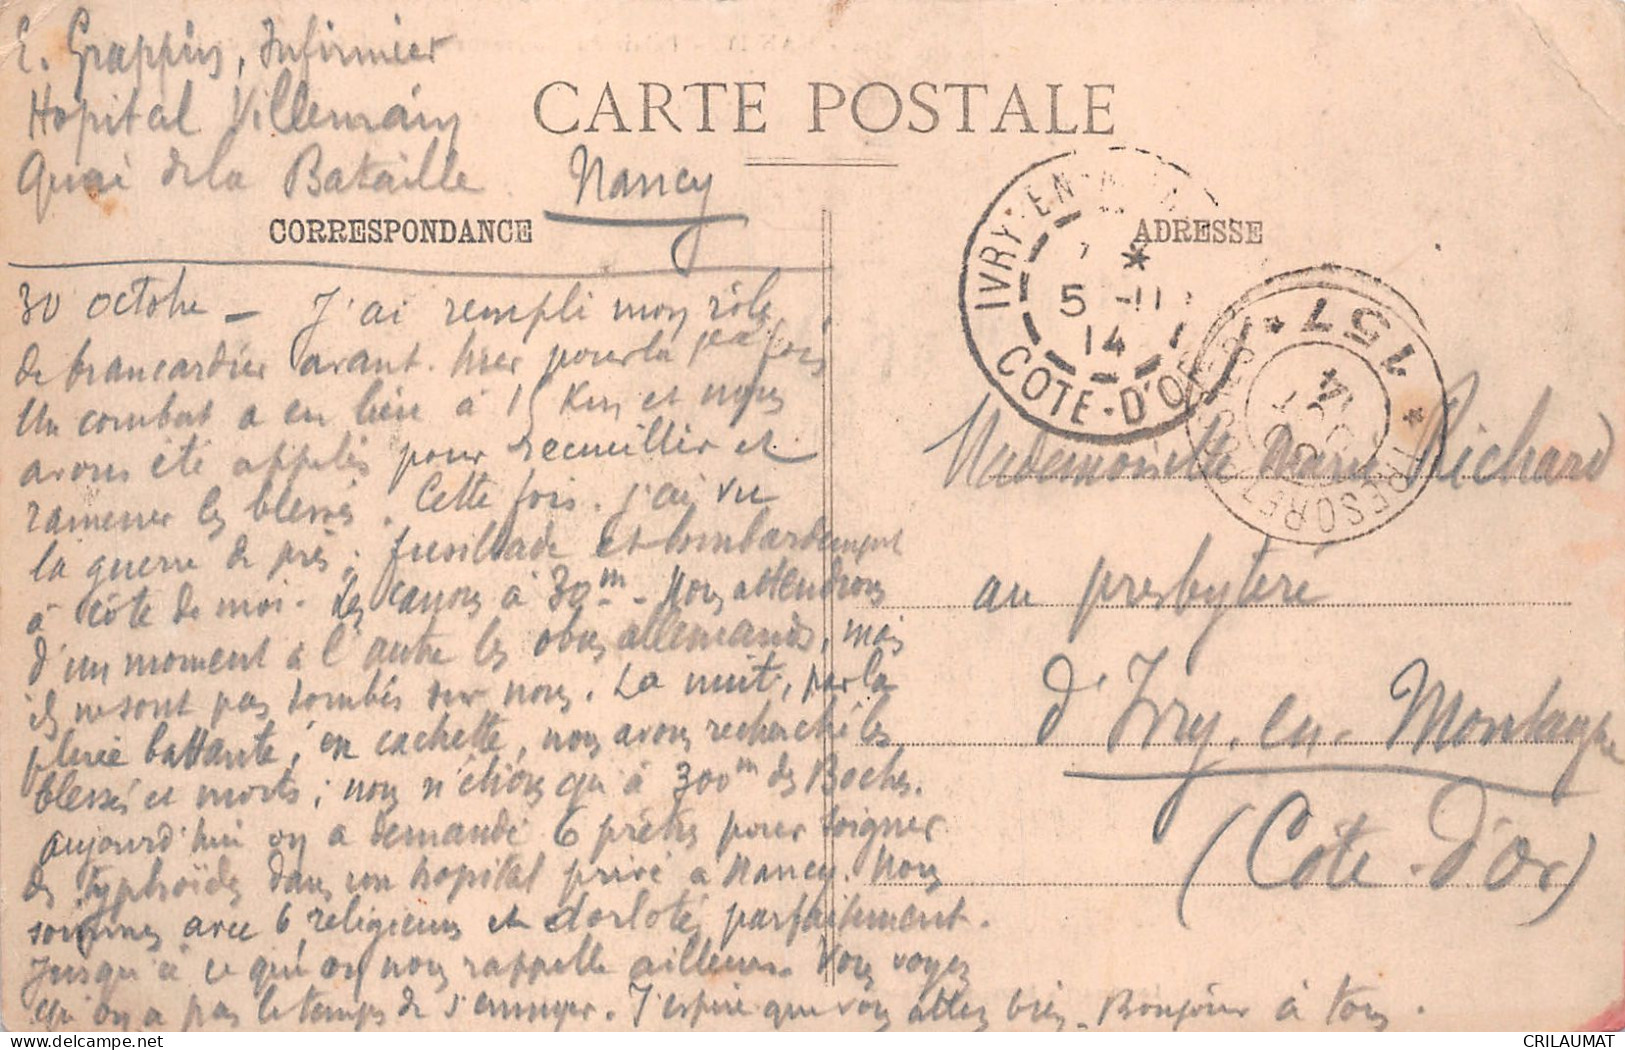 E. Grappin, Infirmier
Hopital Villemain
Quai de la Bataille Nancy
CARTE POSTALE
CORRESPONDANCE
ADRESSE
30 octobre – J'ai rempli mon rôle
de brancardier avant-hier pour la 1ère fois
Un combat a eu lieu à 15 Km et nous
avons été appelés pour recueillir et
ramener les blessés. Cette fois j'ai vu
la guerre de près ; fusillade et bombardement
à côté de moi. Les canons à 30m. Nous attendions
d'un moment à l'autre les obus allemands, mais
ils ne sont pas tombés sur nous. La nuit, par la
pluie battante, en cachette, nous avons recherché les
blessés et morts ; nous n'étions qu'à 300m des Boches.
aujourd'hui on a demandé 6 prêtres pour soigner
des typhoïdes dans un hopital privé à Nancy. Nous
sommes avec 6 religieuses et dorlotés parfaitement.
Jusqu'à ce qu'on nous rappelle ailleurs. Vous voyez
qu'on a pas le temps de s'ennuyer. J'espère que vous allez bien. Bonjour à tous.
IVRY-EN-
5 -11
14
COTE-D'OR
TRESOR ET POSTES
* 157 *
OCT
14
Mademoiselle Marie Richard
au presbytère
d'Ivry-en-Montagne
(Côte-d'Or)
CRILAUMAT